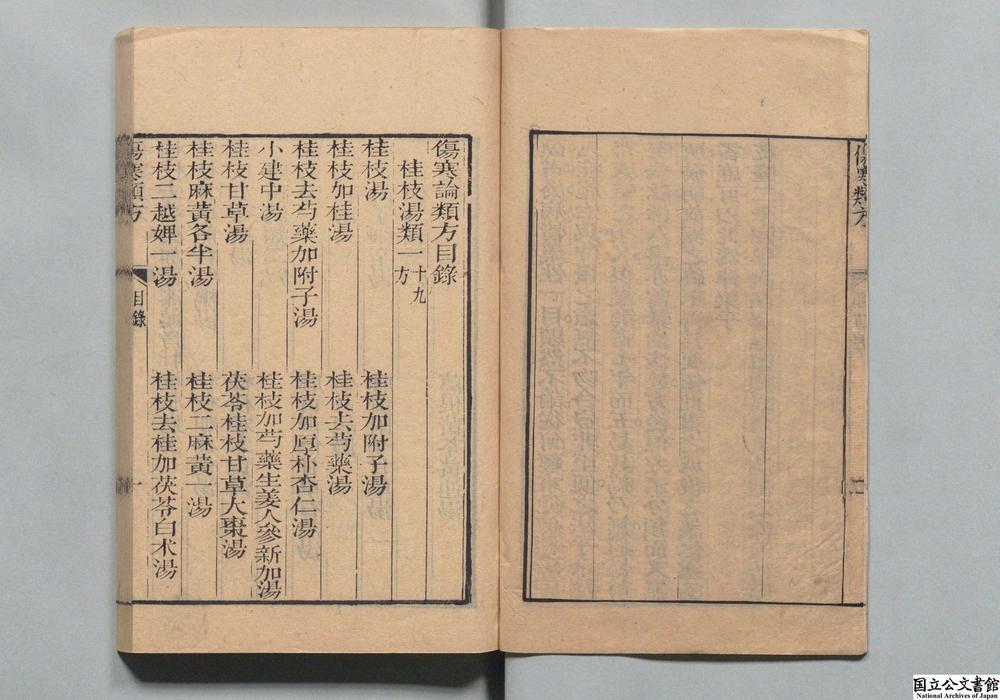 傷寒類方
傷寒論類方目錄
桂枝湯類一 十九方
桂枝湯
桂枝加附子湯
桂枝加桂湯
桂枝去芍藥湯
桂枝去芍藥加附子湯
桂枝加厚朴杏仁湯
小建中湯
桂枝加芍藥生姜人參新加湯
桂枝甘草湯
茯苓桂枝甘草大棗湯
桂枝麻黃各半湯
桂枝二麻黃一湯
桂枝二越婢一湯
桂枝去桂加茯苓白术湯
傷寒類方
目錄
一
国立公文書館
National Archives of Japan